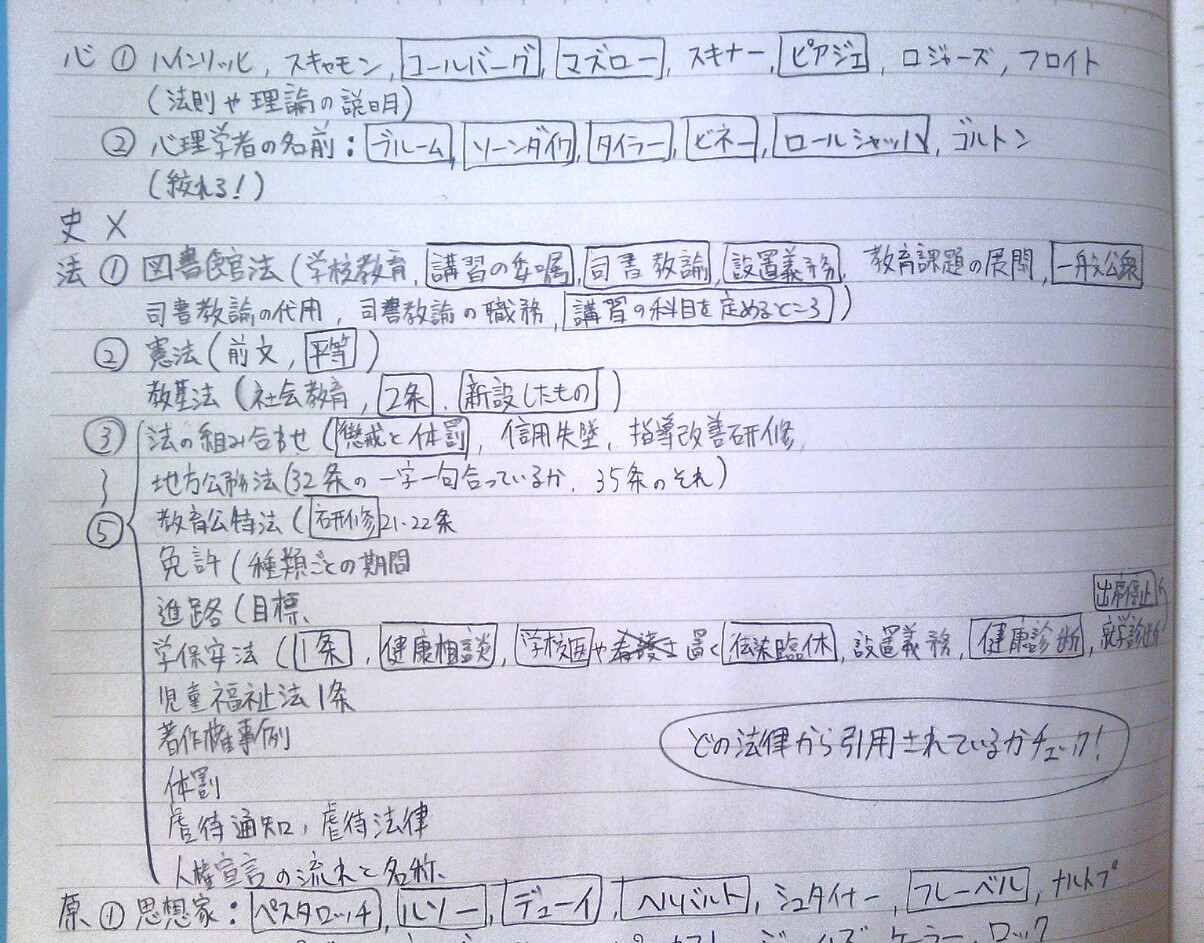 心 ① ハインリッヒ, スキャモン, コールバーグ, マズロー, スキナー, ピアジェ, ロジャーズ, フロイト
(法則や理論の説明)
② 心理学者の名前: ブルーム, ソーンダイク, タイラー, ビネー, ロールシャッハ, ゴルトン
(絞れる!)
史 ×
法 ① 図書館法 (学校教育, 講習の委嘱, 司書教諭, 設置義務, 教育課題の展開, 一般公衆
司書教諭の代用, 司書教諭の職務, 講習の科目を定めるところ)
② 憲法 (前文, 平等)
教基法 (社会教育, 2条, 新設したもの)
③ 法の組み合せ (懲戒と体罰, 信用失墜, 指導改善研修,
地方公務法 (32条の一字一句合っているか, 35条のそれ)
⑤ 教育公特法 (研修 21-22条
免許 (種類ごとの期間
進路 (目標、
出席停止
学保安法 (1条, 健康相談, 学校医や 置く 伝染臨休, 設置義務, 健康診断, 就学診断
児童福祉法1条
著作権事例
どの法律から引用されているかチェック!
体罰
虐待通知, 虐待法律
人権宣言の流れと名称、
原 ① 思想家: ペスタロッチ, ルソー, デューイ, ヘルバルト, シュタイナー, フレーベル, ナルトプ
ケーラー, ロック